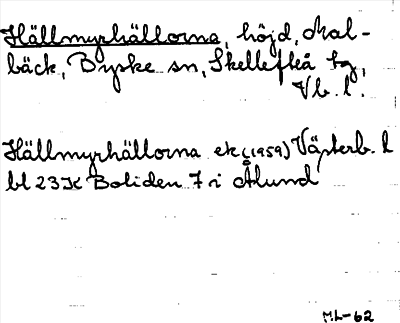 Hällmyrhällorna, höjd, Mal-
bäck, Byske sn, Skellefteå tg,
Vb. l.
Hällmyrhällorna ek (1959) Västerb. l
bl 23K Boliden 7 i Ålund
ML-62